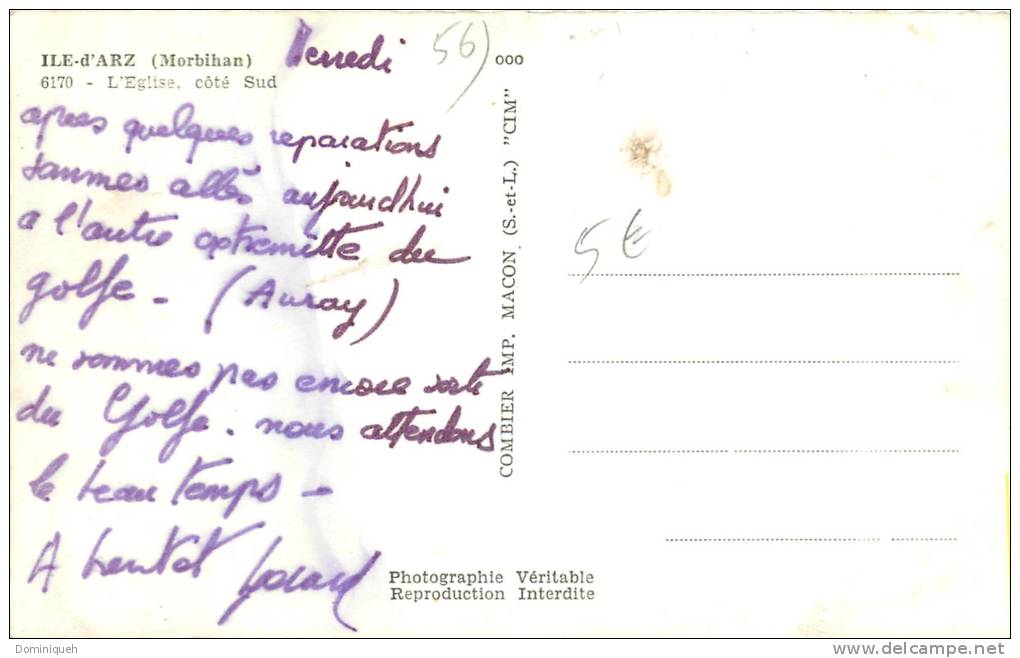 ILE-d'ARZ (Morbihan)
6170 - L'Eglise, côté Sud
Venredi
56)
ooo
apres quelques reparations
sommes allés aujourdhui
a l'autre extremitte du
golfe - (Auray)
ne sommes pas encore sorti
du Golfe. nous attendons
le beau temps -
A bientot
COMBIER IMP. MACON (S.-et-L.) "CIM"
5 €
Photographie Véritable
Reproduction Interdite
Dominiqueh
delcampe.net